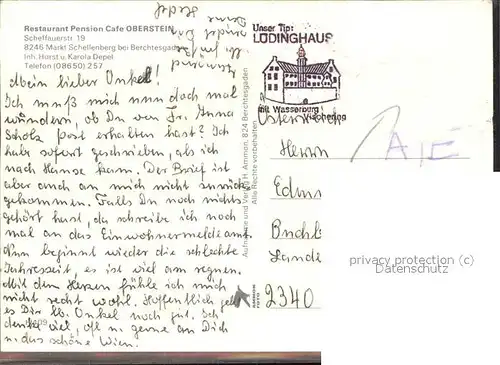 Restaurant Pension Cafe OBERSTEIN
Scheffauerstr. 19
8246 Markt Schellenberg bei Berchtesgaden
Inh. Horst u. Karola Depel
Telefon (08650) 257
Mein lieber Onkel!
Ich muß mich nun doch mal
wundern, ob Du von Fr. Anna
Scholz post erhalten hast? Ich
habe sofort geschrieben, als ich
nach Hause kam. Der Brief ist
aber auch an mich nicht zurück
gekommen. Falls Du noch nichts
gehört hast, da schreibe ich noch
mal an das Einwohnermeldeamt.
Nun beginnt wieder die schlechte
Jahreszeit, es ist viel am regnen.
Mit dem Herzen fühle ich mich
nicht recht wohl. Hoffentlich geht
es Dir lb. Onkel noch gut. Ich
denke viel, oft u. gerne an Dich
u. das schöne Wien.
Aufnahme und Verlag H. Ammon, 824 Berchtesgaden
Alle Rechte vorbehalten
AMMON
FOTO
Unser Tip:
LÜDINGHAUS
mit Wasserburg
Vischering
Herrn
Edm
2340
AIE
privacy protection (c)
Datenschutz